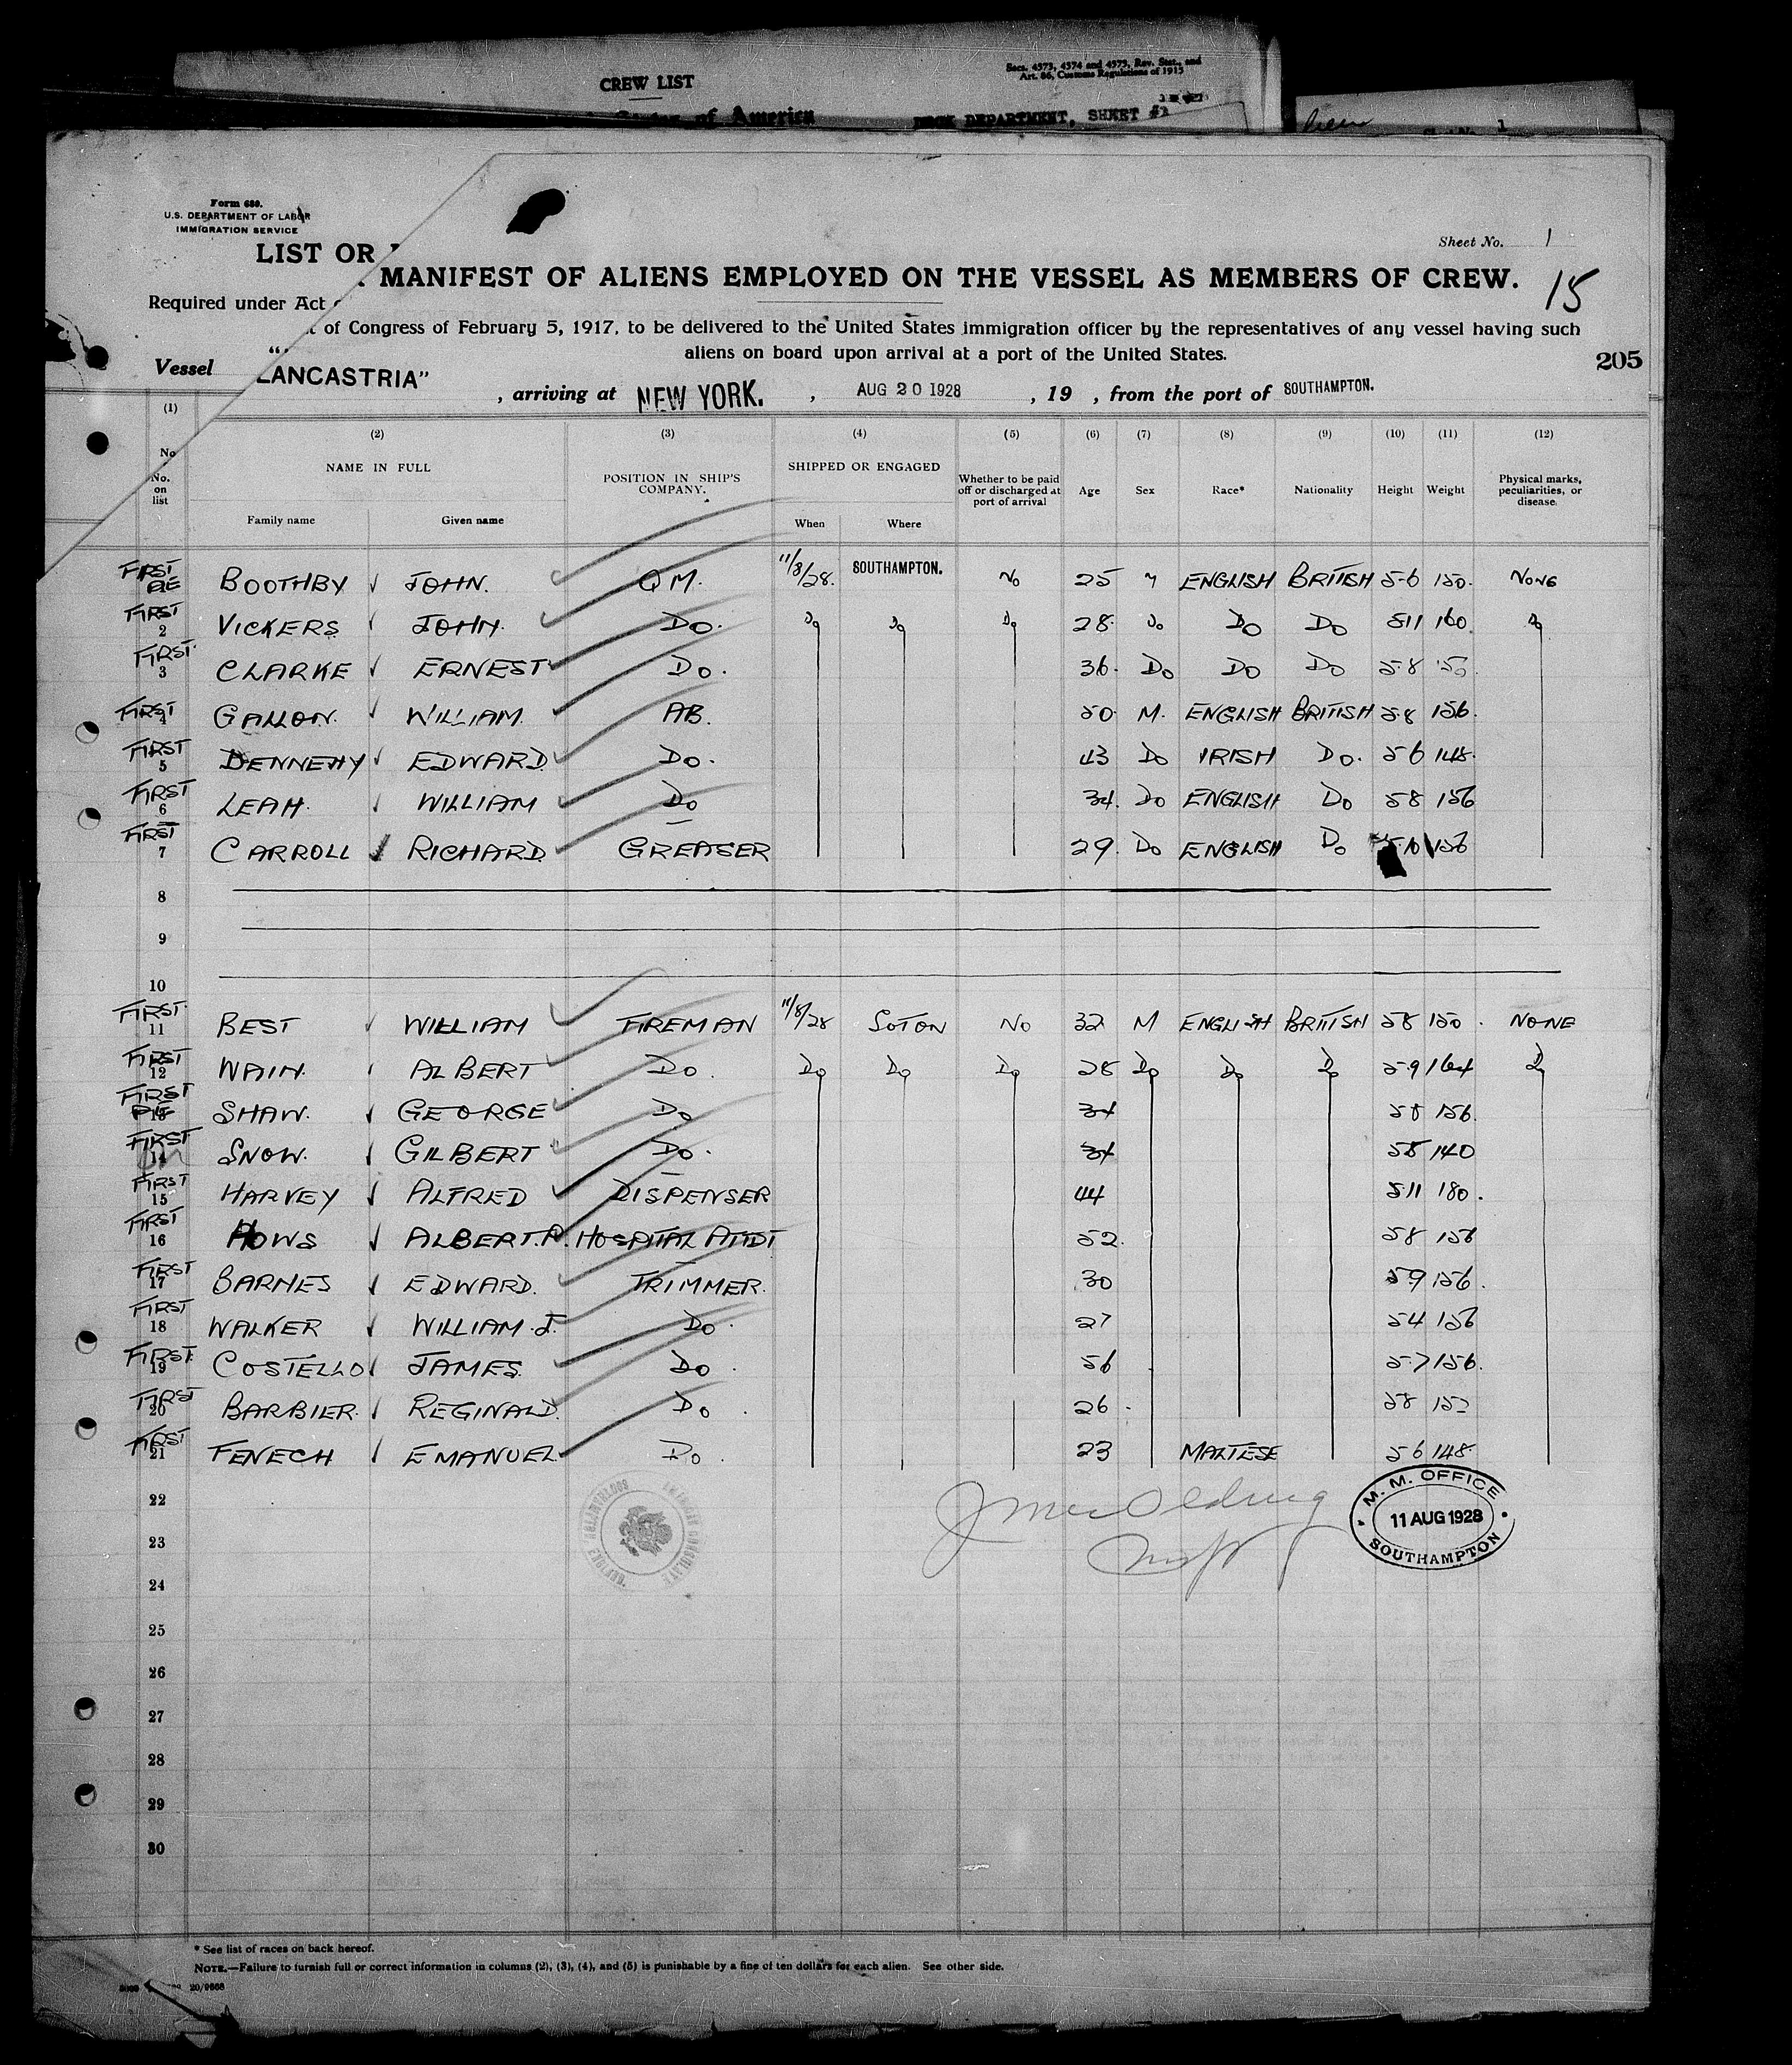 CREW LIST
Secs. 4573, 4574 and 4575, Rev. Stat., and
Art. 86, Customs Regulations of 1915
of America
DECK DEPARTMENT, SHEET #2
1
Form 680.
U.S. DEPARTMENT OF LABOR
IMMIGRATION SERVICE
Sheet No. 1
LIST OR
MANIFEST OF ALIENS EMPLOYED ON THE VESSEL AS MEMBERS OF CREW.
15
Required under Act
of Congress of February 5, 1917, to be delivered to the United States immigration officer by the representatives of any vessel having such
aliens on board upon arrival at a port of the United States.
205
Vessel "LANCASTRIA", arriving at NEW YORK., AUG 20 1928, 19 , from the port of SOUTHAMPTON.
(1) (2) (3) (4) (5) (6) (7) (8) (9) (10) (11) (12)
No. on list NAME IN FULL POSITION IN SHIP'S COMPANY. SHIPPED OR ENGAGED Whether to be paid off or discharged at port of arrival Age Sex Race* Nationality Height Weight Physical marks, peculiarities, or disease.
Family name Given name When Where
FIRST BOOTHBY JOHN. QM. 11/8/28. SOUTHAMPTON. NO 25 M ENGLISH BRITISH 5-6 150. NONE
FIRST 2 VICKERS JOHN. DO. DO DO DO 28. DO DO DO 511 160. DO
FIRST 3 CLARKE ERNEST DO. 36. DO DO DO 5-8
FIRST 4 GALLON. WILLIAM. AB. 50. M. ENGLISH BRITISH 5-8 156.
FIRST 5 DENNEHY EDWARD. DO. 43 DO IRISH DO. 56 148.
FIRST 6 LEAH. WILLIAM DO 34. DO ENGLISH DO 58 156
FIRST 7 CARROLL RICHARD. GREASER 29. DO ENGLISH DO 5.10 156
8
9
10
FIRST. 11 BEST WILLIAM FIREMAN 11/8/28 SOTON NO 32 M ENGLISH BRITISH 58 150. NONE
FIRST 12 WAIN. ALBERT DO. DO DO DO 28 DO DO DO 5-9 164 DO
FIRST 13 SHAW. GEORGE DO 34 58 156.
FIRST 14 SNOW. GILBERT DO. 34 58 140
FIRST 15 HARVEY ALFRED DISPENSER 44 511 180.
FIRST 16 HOWS ALBERT.A. HOSPITAL ATTDT 52. 58 156
FIRST 17 BARNES EDWARD. TRIMMER. 30 59 156.
FIRST 18 WALKER WILLIAM.J. DO. 27 54 156
FIRST. 19 COSTELLO JAMES. DO. 56 5-7 156.
FIRST 20 BARBIER. REGINALD. DO. 26. 58
FIRST 21 FENECH EMANUEL. DO. 23 MALTESE 56 148.
22
M. M. OFFICE
11 AUG 1928
SOUTHAMPTON
23
24
25
26
27
28
29
30
* See list of races on back hereof.
NOTE.—Failure to furnish full or correct information in columns (2), (3), (4), and (5) is punishable by a fine of ten dollars for each alien. See other side.
20/9668